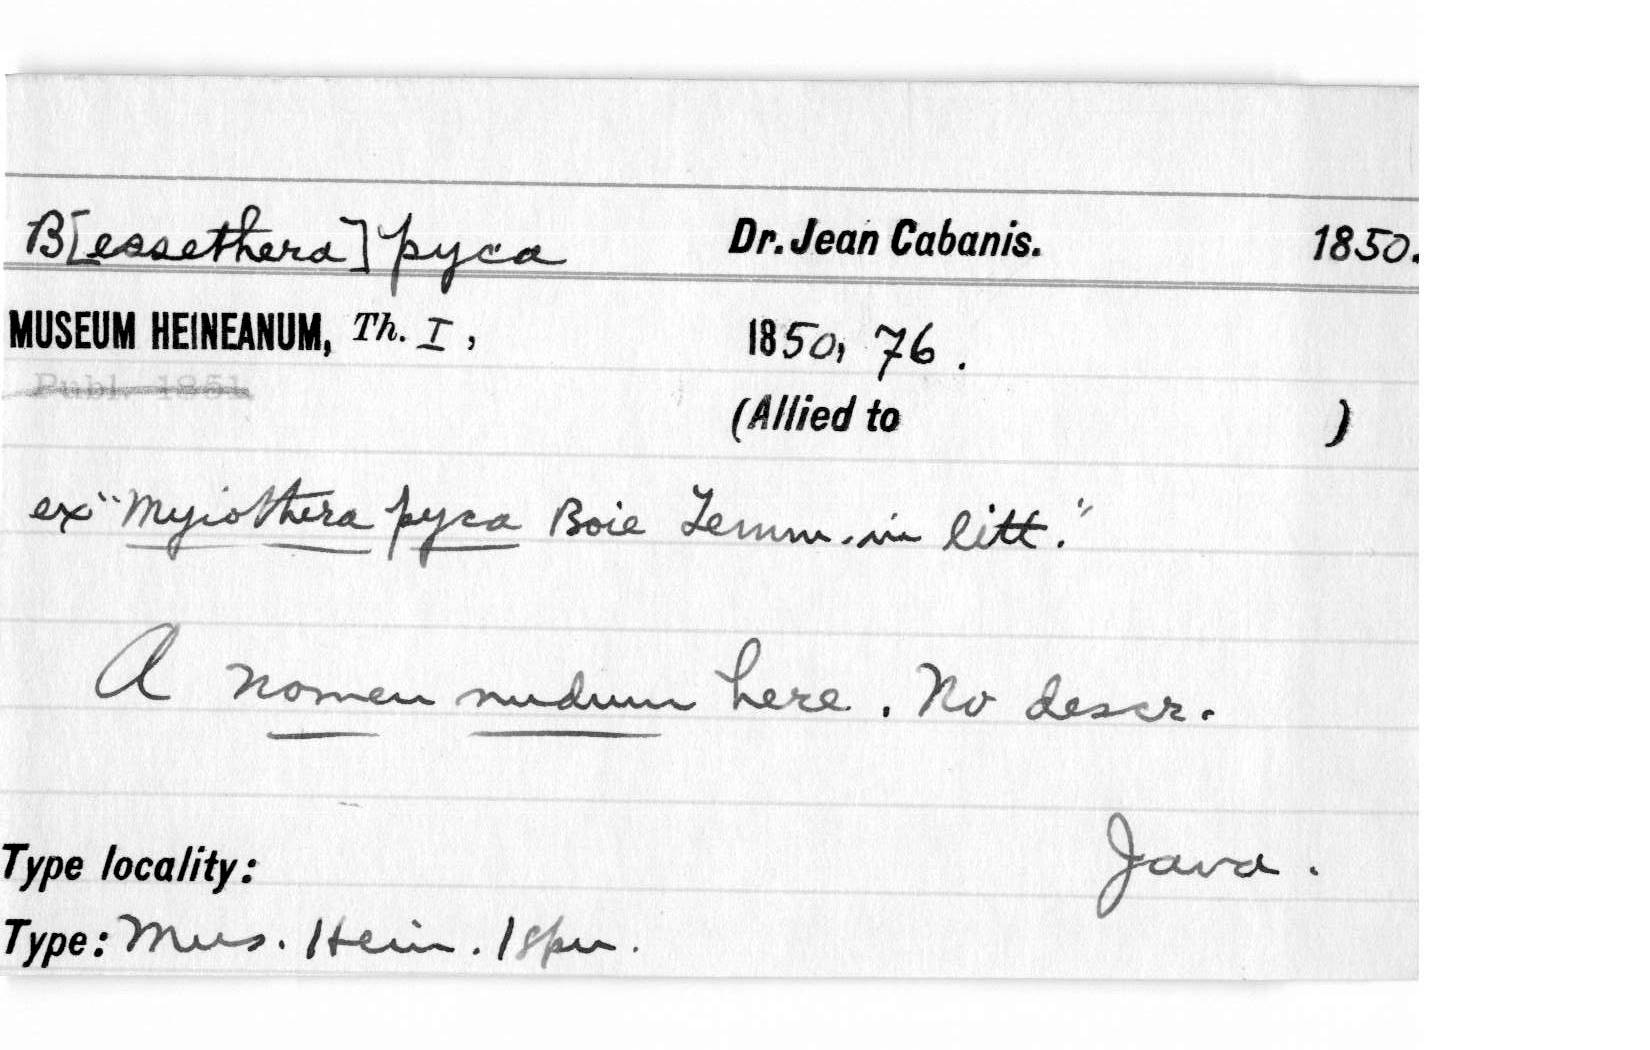 B[essethera] pyca Dr. Jean Cabanis. 1850.
MUSEUM HEINEANUM, Th. I, 1850, 76.
Publ. 1851
(Allied to )
ex "Myiothera pyca Boie Temm. in litt."
A nomen nudum here. No descr.
Java.
Type locality:
Type: Mus. Hein. 1 spm.